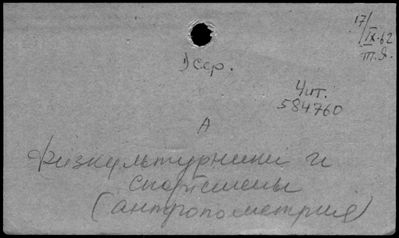 17/IX-62
III. Я.
Эсер.
Чит.
584760
А
Физкультурники и
спортсмены
(антропометрия)